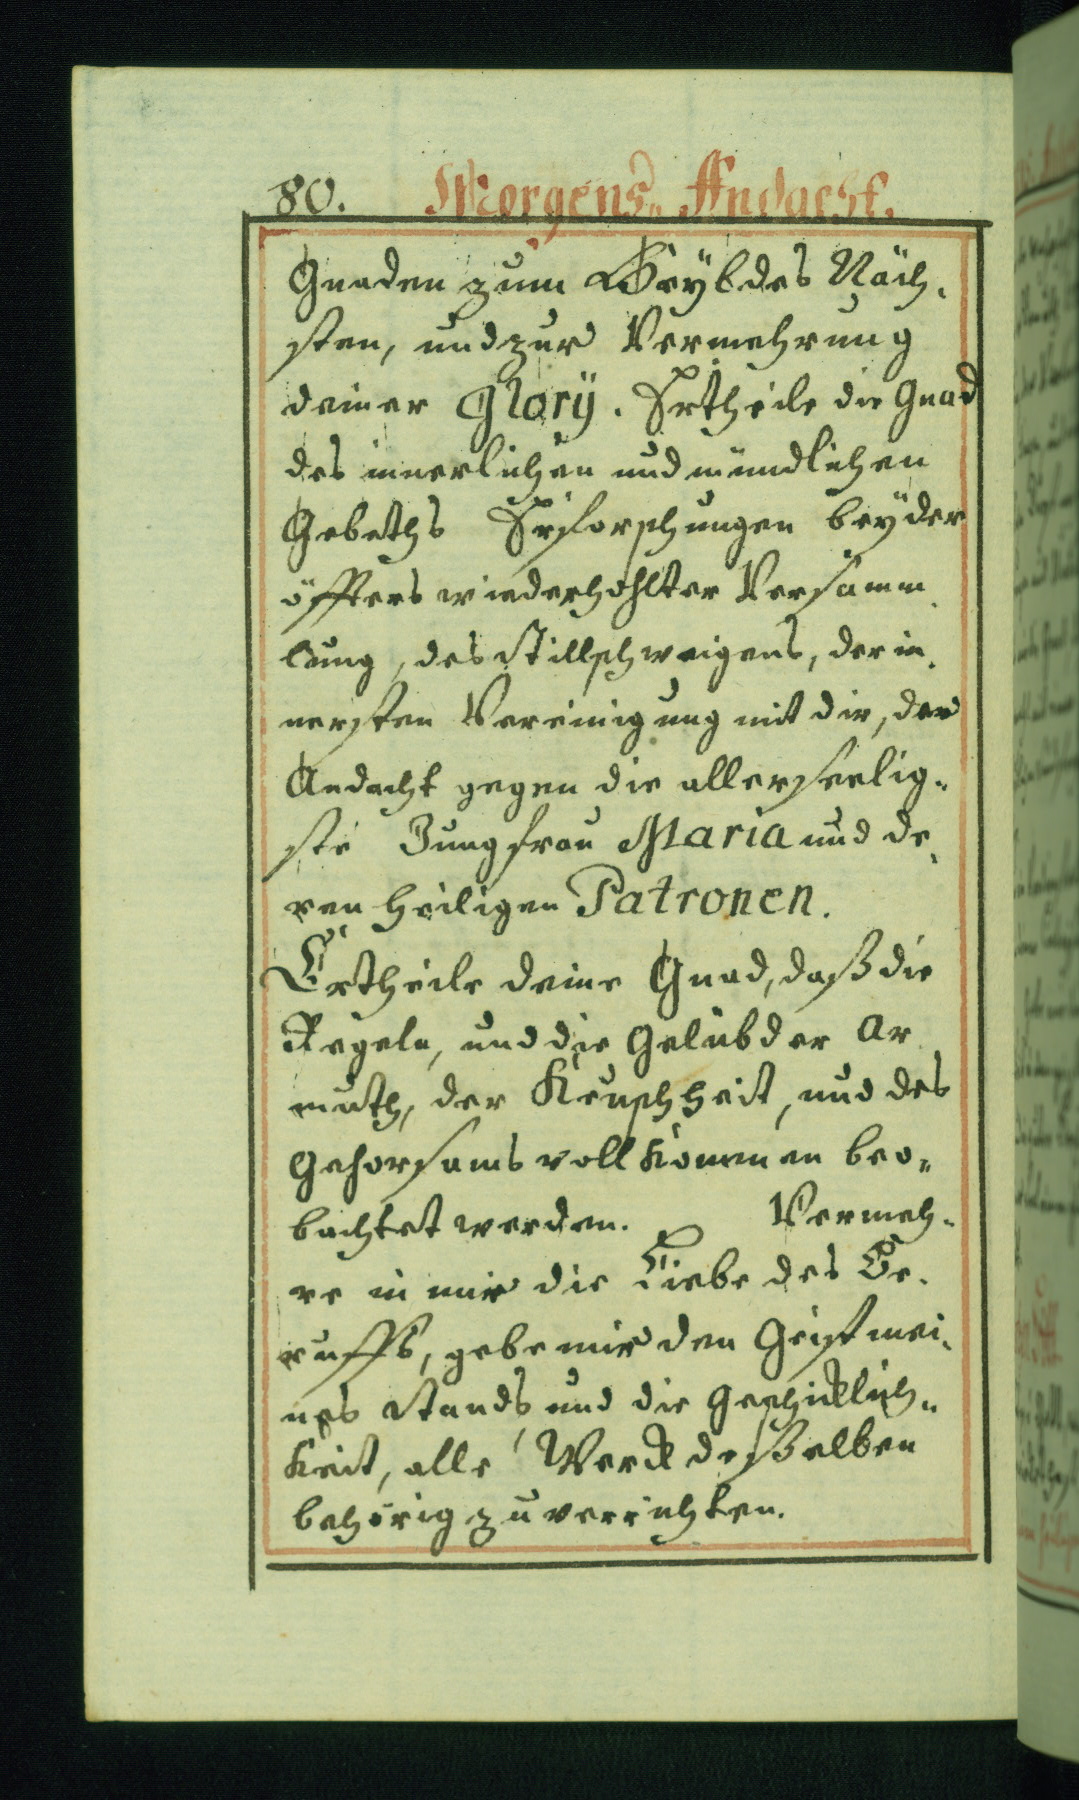 80. Morgens. Andacht.
Gnaden zum Beÿl des Näch.
sten, und zur Vermehrung
deiner Glorÿ. Ertheile die Gnad
des innerlichen und mündlichen
Gebeths Erforschungen beÿ der
öffters wiederhohlter Versamm.
lung, des Stillschweigens, der in.
nersten Vereinigung mit dir, der
Andacht gegen die allerseelig.
ste Jungfrau Maria und de.
ren heiligen Patronen.
Ertheile deine Gnad, daß die
Regeln, und die Gelübd der Ar
muth, der Keuschheit, und des
Gehorsams vollkommen beo„
bachtet werden. Vermeh„
re in mir die Liebe des Be.
ruffs, gebe mir den Geist mei.
nes Stands und die Geschicklich„
keit, alle Werck deßelben
behörig zu verrichten.